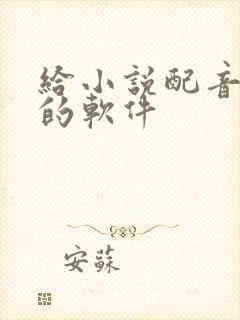 給小説配音
的軟件
安蘇